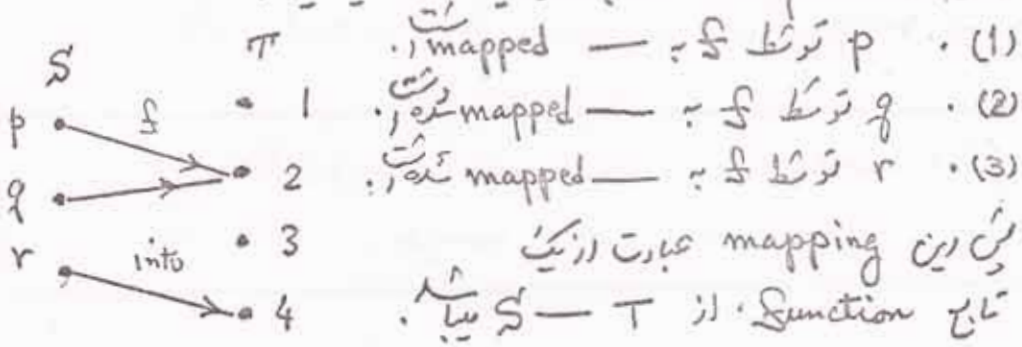 (1) . p توسط f به — mapped شده است.
(2) . q توسط f به — mapped شده است.
(3) . r توسط f به — mapped شده است.
پس این mapping عبارت از یک
تابع function از S — T میباشد.
S T
p f 1
q 2
r into 3
4